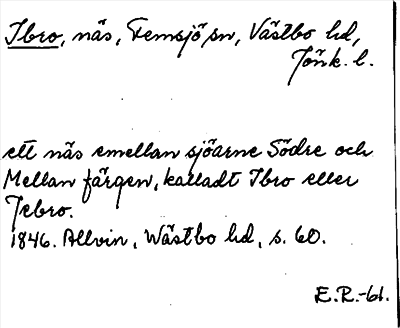 Ibro, näs, Femsjö sn, Västbo hd,
Jönk. l.
ett näs emellan sjöarne Södre och
Mellan färgen, kalladt Ibro eller
Jebro.
1846. Allvin, Wästbo hd, s. 60.
E.R.-61.